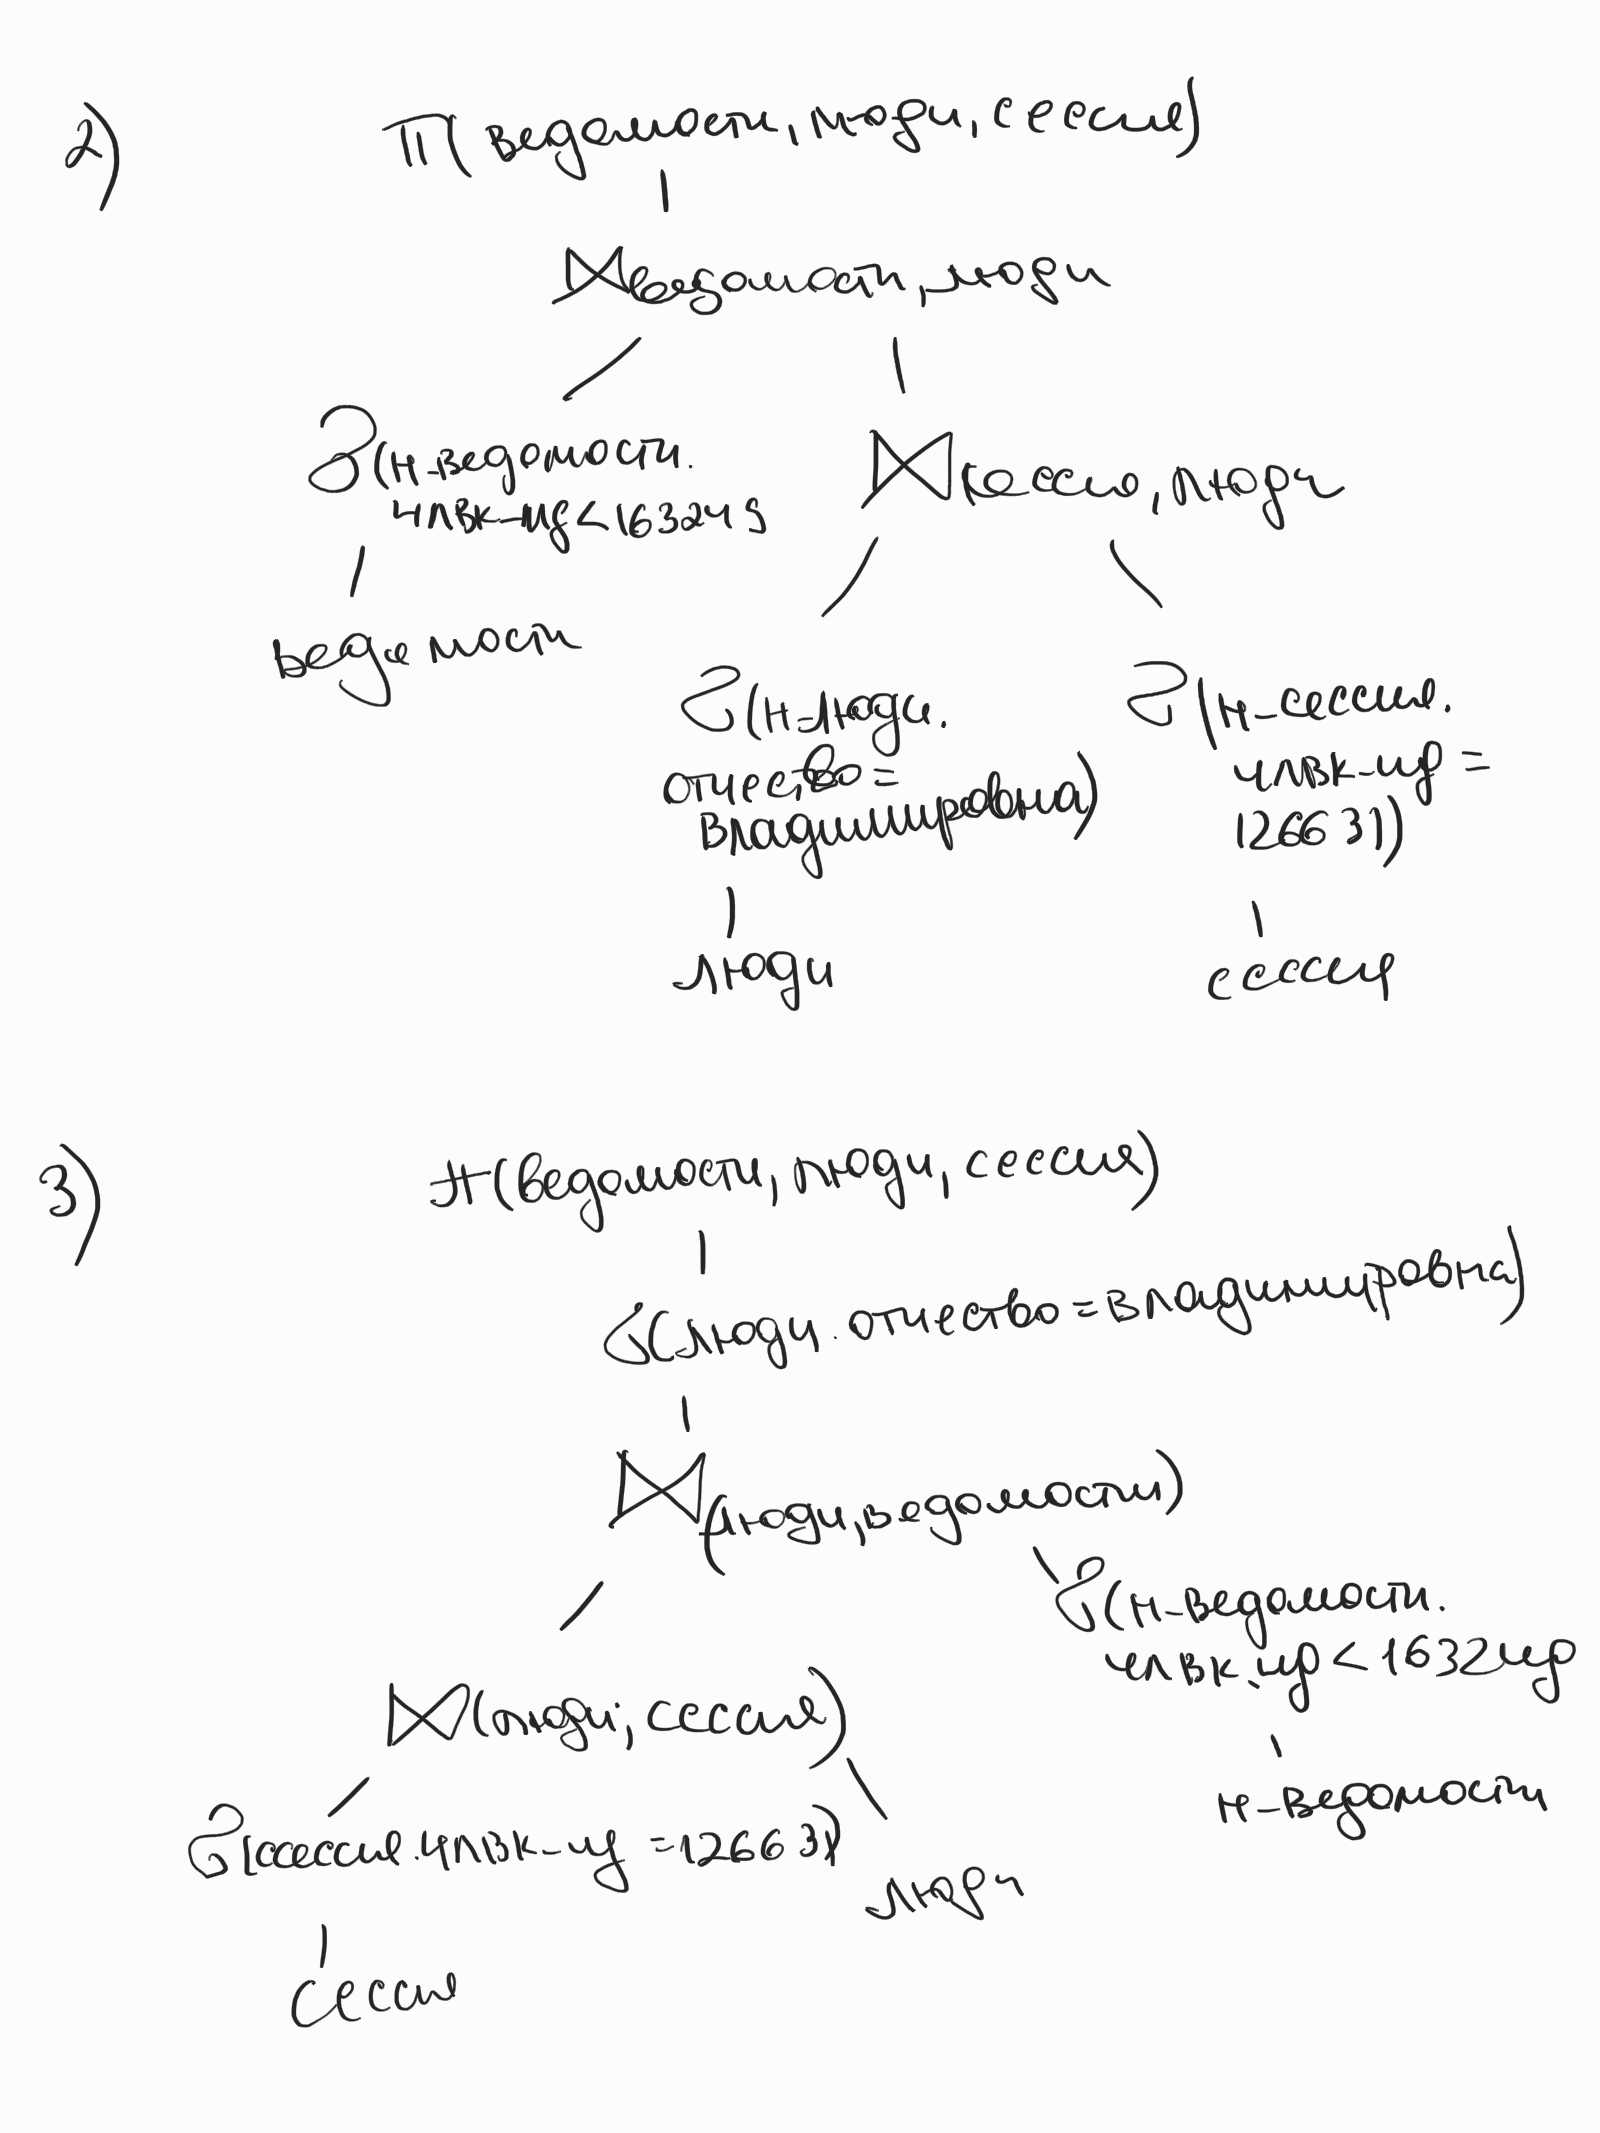 2)
π(ведомости, люди, сессия)
⋈ведомости, люди
σ(н_ведомости.
члвк_ид<163249
ведомости
⋈сессию, люди
σ(н_люди.
отчество=
Владимировна)
люди
σ(н_сессия.
члвк_ид =
126631)
сессия
3)
π(ведомости, люди, сессия)
σ(люди.отчество=владимировна)
⋈
(люди, ведомости)
σ(н_ведомости.
члвк_ид < 1632ид
н_ведомости
⋈(люди, сессия)
σ(сессия.члвк_ид =126631)
люди
сессия